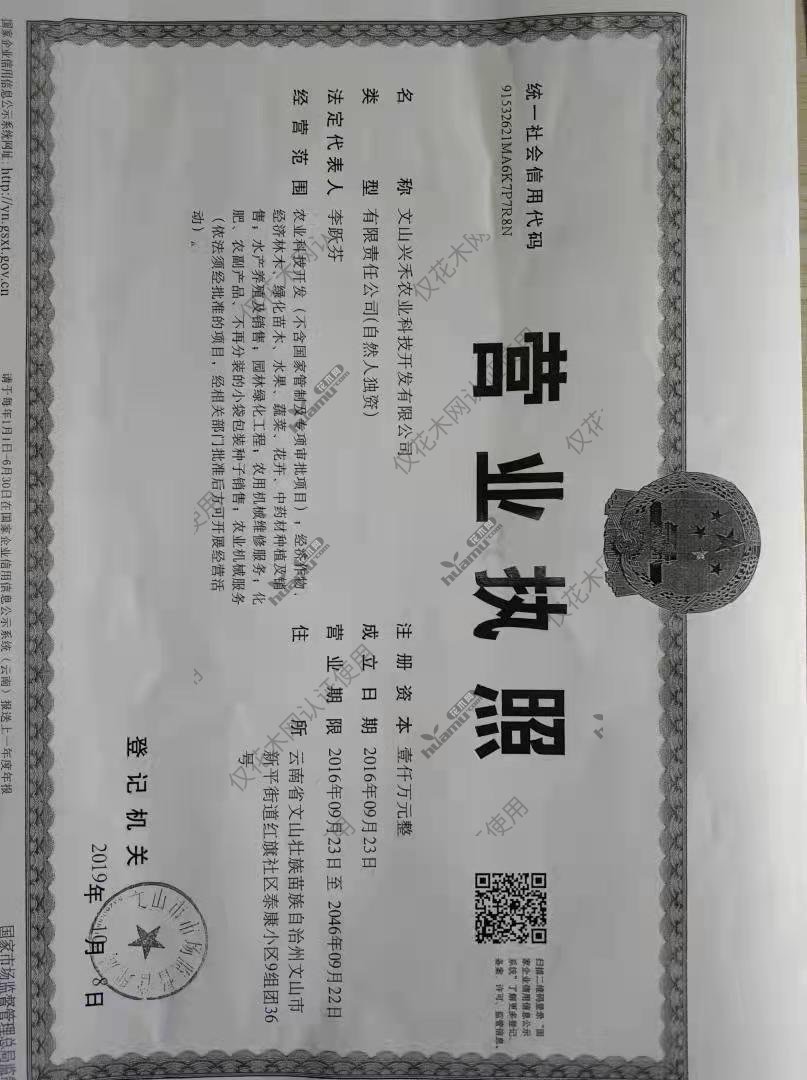 营业执照
统一社会信用代码
91532621MA6K7P7R8N
扫描二维码登录“国
家企业信用信息公示
系统”了解更多登记、
备案、许可、监管信息。
名 称 文山兴禾农业科技开发有限公司
类 型 有限责任公司(自然人独资)
法定代表人 李跃芬
经营范围 农业科技开发（不含国家管制及专项审批项目），经济作物、
经济林木、绿化苗木、水果、蔬菜、花卉、中药材种植及销
售；水产养殖及销售；园林绿化工程；农用机械维修服务；化
肥、农副产品、不再分装的小袋包装种子销售；农业机械服务
（依法须经批准的项目，经相关部门批准后方可开展经营活
动）。
注册资本 壹仟万元整
成立日期 2016年09月23日
营业期限 2016年09月23日至 2046年09月22日
住 所 云南省文山壮族苗族自治州文山市
新平街道红旗社区泰康小区9组团36
号
登记机关
文山市市场监督管理局
2019年 月8日
国家企业信用信息公示系统网址: http://yn.gsxt.gov.cn
请于每年1月1日-6月30日在国家企业信用信息公示系统（云南）报送上一年度年报
国家市场监督管理总局监
仅花木网认证使用
花木网
huamu.com